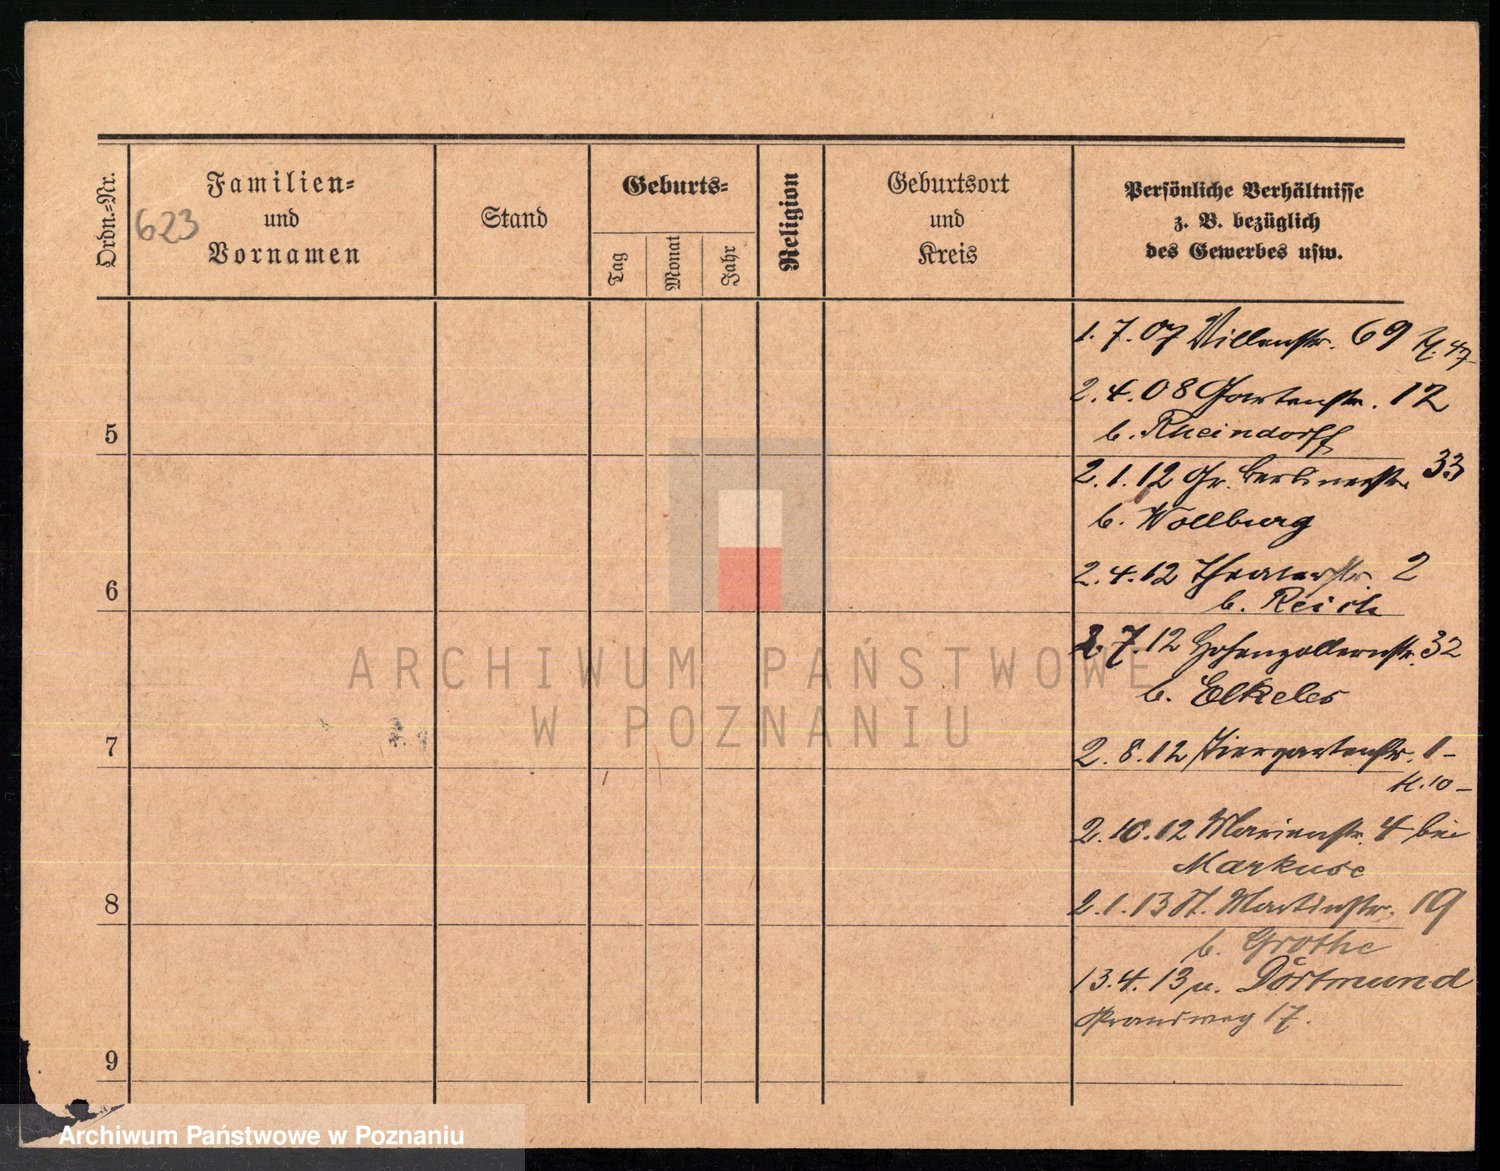 Ordn.-Nr.
623
Familien-
und
Vornamen
Stand
Geburts-
Tag
Monat
Jahr
Religion
Geburtsort
und
Kreis
Persönliche Verhältnisse
z. B. bezüglich
des Gewerbes usw.
1.7.07 Villenstr. 69
2.4.08 Gartenstr. 12
b. Rheindorff
5
2.1.12 Gr. Berlinerstr. 33
b. Wollburg
2.4.12 Theaterstr. 2
b. Reich
6
2.7.12 Hohenzollernstr. 32
b. Elkeles
2.8.12 Tiergartenstr. 1-
7
2.10.12 Marienstr. 4 bei
Markuse
2.1.13 St. Martinstr. 19
8
b. Grothe
13.4.13 n. Dortmund
17.
9
ARCHIWUM PAŃSTWOWE
W POZNANIU
Archiwum Państwowe w Poznaniu